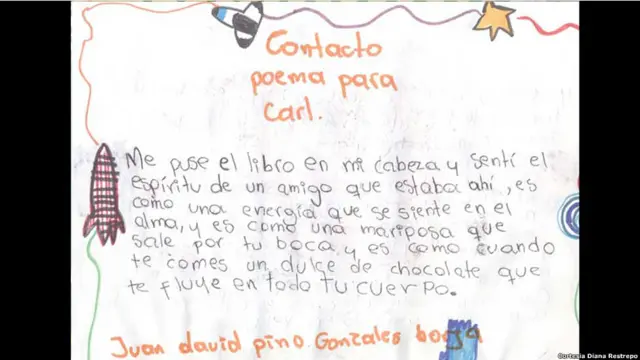 Contacto
poema para
Carl.
Me puse el libro en mi cabeza y sentí el
espíritu de un amigo que estaba ahí, es
como una energía que se siente en el
alma, y es como una mariposa que
sale por tu boca, y es como cuando
te comes un dulce de chocolate que
te fluye en todo tu cuerpo.
Juan david pino. Gonzales borja
Cortesia Diana Restrepo